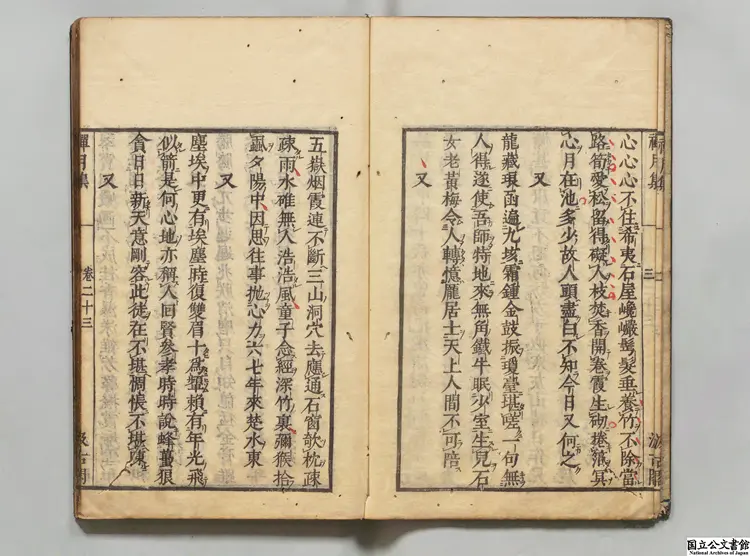 禪月集
三
心心心不住希夷石屋巉巖鬢髮垂養竹不除當
路筍愛松留得礙人枝焚香開卷霞生砌捲箔冥
心月在池多少故人頭盡白不知今日又何之
又
龍藏琅函遍九垓霜鍾金鼓振瓊臺堪嗟一句無
人得遂使吾師特地來無角鐵牛眠少室生兒石
女老黃梅令人轉憶龐居士天上人間不可陪
又
五嶽烟霞連不斷三山洞穴去應通石窗欹枕疎
疎雨水碓無人浩浩風童子念經深竹裏獼猴拾
蝨夕陽中因思往事抛心力六七年來楚水東
又
塵埃中更有埃塵時復雙眉十為顰賴有年光飛
似箭是何心地亦稱人回賢參孝時時說蜂蠆狼
貪日日新天意剛容此徒在不堪惆悵不堪陳
又
禪月集
卷二十三
汲古閣
国立公文書館
National Archives of Japan